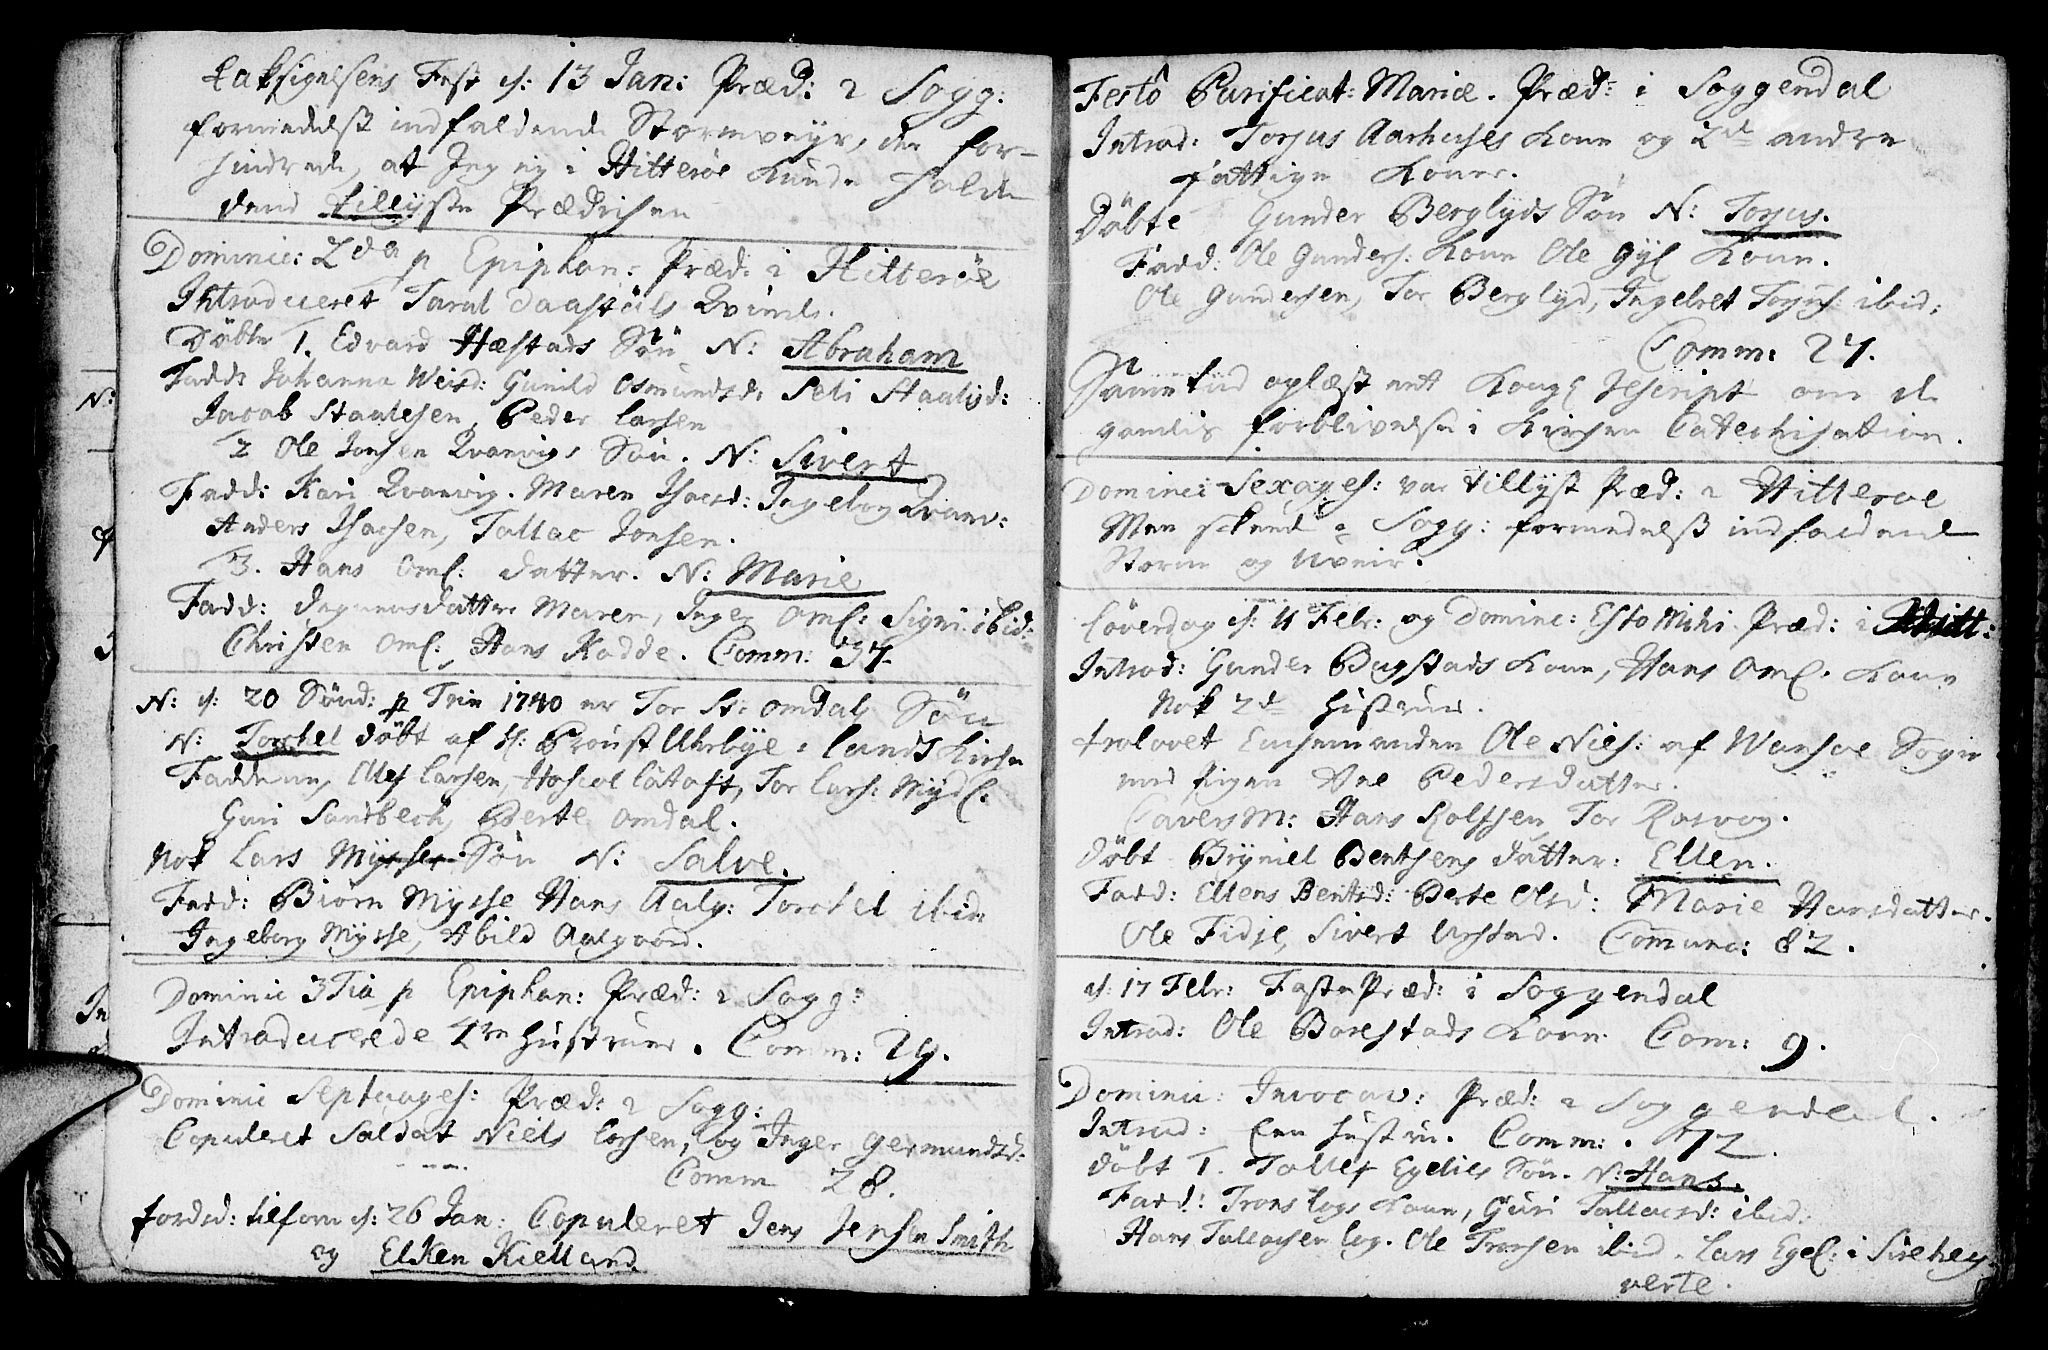 Taksigelsens Fest d: 13 Jan: Præd: i Sogg:
formedelst indfaldende Stormveyr, der for-
hindrede, at Jeg ey i Hitterøe kunde holde
dend tillyste Prædichen
Dominic: 2da p Epiphan: Præd: i Hitterøe
Introduceret Taral Daastøls Qvinde.
Døbte 1. Edvard Hæstads Søn N: Abraham
Fadd: Johanna Weisd: Gunild Osmundsd: Seli Staalesd:
Jacob Staalesen, Peder Larsen
2 Ole Jonsen Qvanvigs Søn. N: Sivert
Fadd: Kari Qvanvig. Maren Isacsd: Ingeborg Qvanv:
Anders Isacsen, Tallac Jonsen.
3. Hans Oml: datter. N: Marie
Fadd: Degnens datter Maren, Inger Oml: Signi ibid:
Christen Oml: Hans Kodde. Comm: 37.
N: d: 20 Sønd: p Trin 1740 er Tor St: Omdals Søn
N: Torchel døbt af H: Proust Uhrbye i Lunds Kirche
Faddere, Olef Larsen, Tor Lars: Mydl:
Guri Sandbech, Berte Omdal.
Nok Lars Mysses Søn N: Salve.
Fadd: Biørn Mysse Hans Aalg: Torchel ibid
Ingeborg Mysse, Abild Aalgaard.
Dominic 3Tia p Epiphan: Præd: i Sogg:
Introducerede 4re Hustruer. Comm: 29.
Dominic Septuages: Præd: i Sogg:
Copuleret Saldat Niels Larsen, og Inger Germundsd:
Comm 28.
Torsd: tilforn d: 26 Jan: Copuleret Jens Jensen Smith
og Elken Kielland.
N:
3
In
Festo Purificat: Mariæ. Præd: i Soggendal
Introd: Torjus Aarhuses Kone og 2de andre
fattige Koner.
Døbte Gunder Berglyds Søn N: Torjus.
Fadd: Ole Gunders: Kone Ole Gyl Kone.
Ole Gundersen, Tor Berglyd, Ingebret Torjus: ibid:
Comm: 27.
Samme tid oplæst ett Kongl Rescript om de
gamles forblivelse i Kirchen Catechisation.
Dominic Sexages: var tillyst Præd: i Hitterøe
Men skeede i Sogg: formedelst indfaldende
Storm og Uveir.
Løverdag d: 11 Febr: og Dominic: Esto Mihi Præd: i Hitt:
Introd: Gunder Bugstads Kone, Hans Oml. Kone
Nok 2de Hustruer.
trolovet Enchemanden Ole Niels: af Wansøe Sogn
med Pigen Ane Pedersdatter.
Caverm: Hans Rolfsen, Tor Rasvog.
Døbt Bryniel Bentsens datter: Ellen.
Fadd: Ellens Bentsd: Berte Olsd: Marie Hansdatter.
Ole Fidje, Sivert Urstad. Communc: 82.
d: 17 Febr: Faste Præd: i Soggendal
Introd: Ole Borestads Kone. Com: 9.
Dominic: Invocav: Præd: i Soggendal.
Introd: Een Hustru. Comm: 72.
Døbt 1. Tollef Egelies Søn. N: Hans.
Fadd: Trons Logs Kone, Guri Tallacsd: ibid:
Hans Tallacsen Log. Ole Tronsen ibid Lars Egel: i Sirehey
verte.